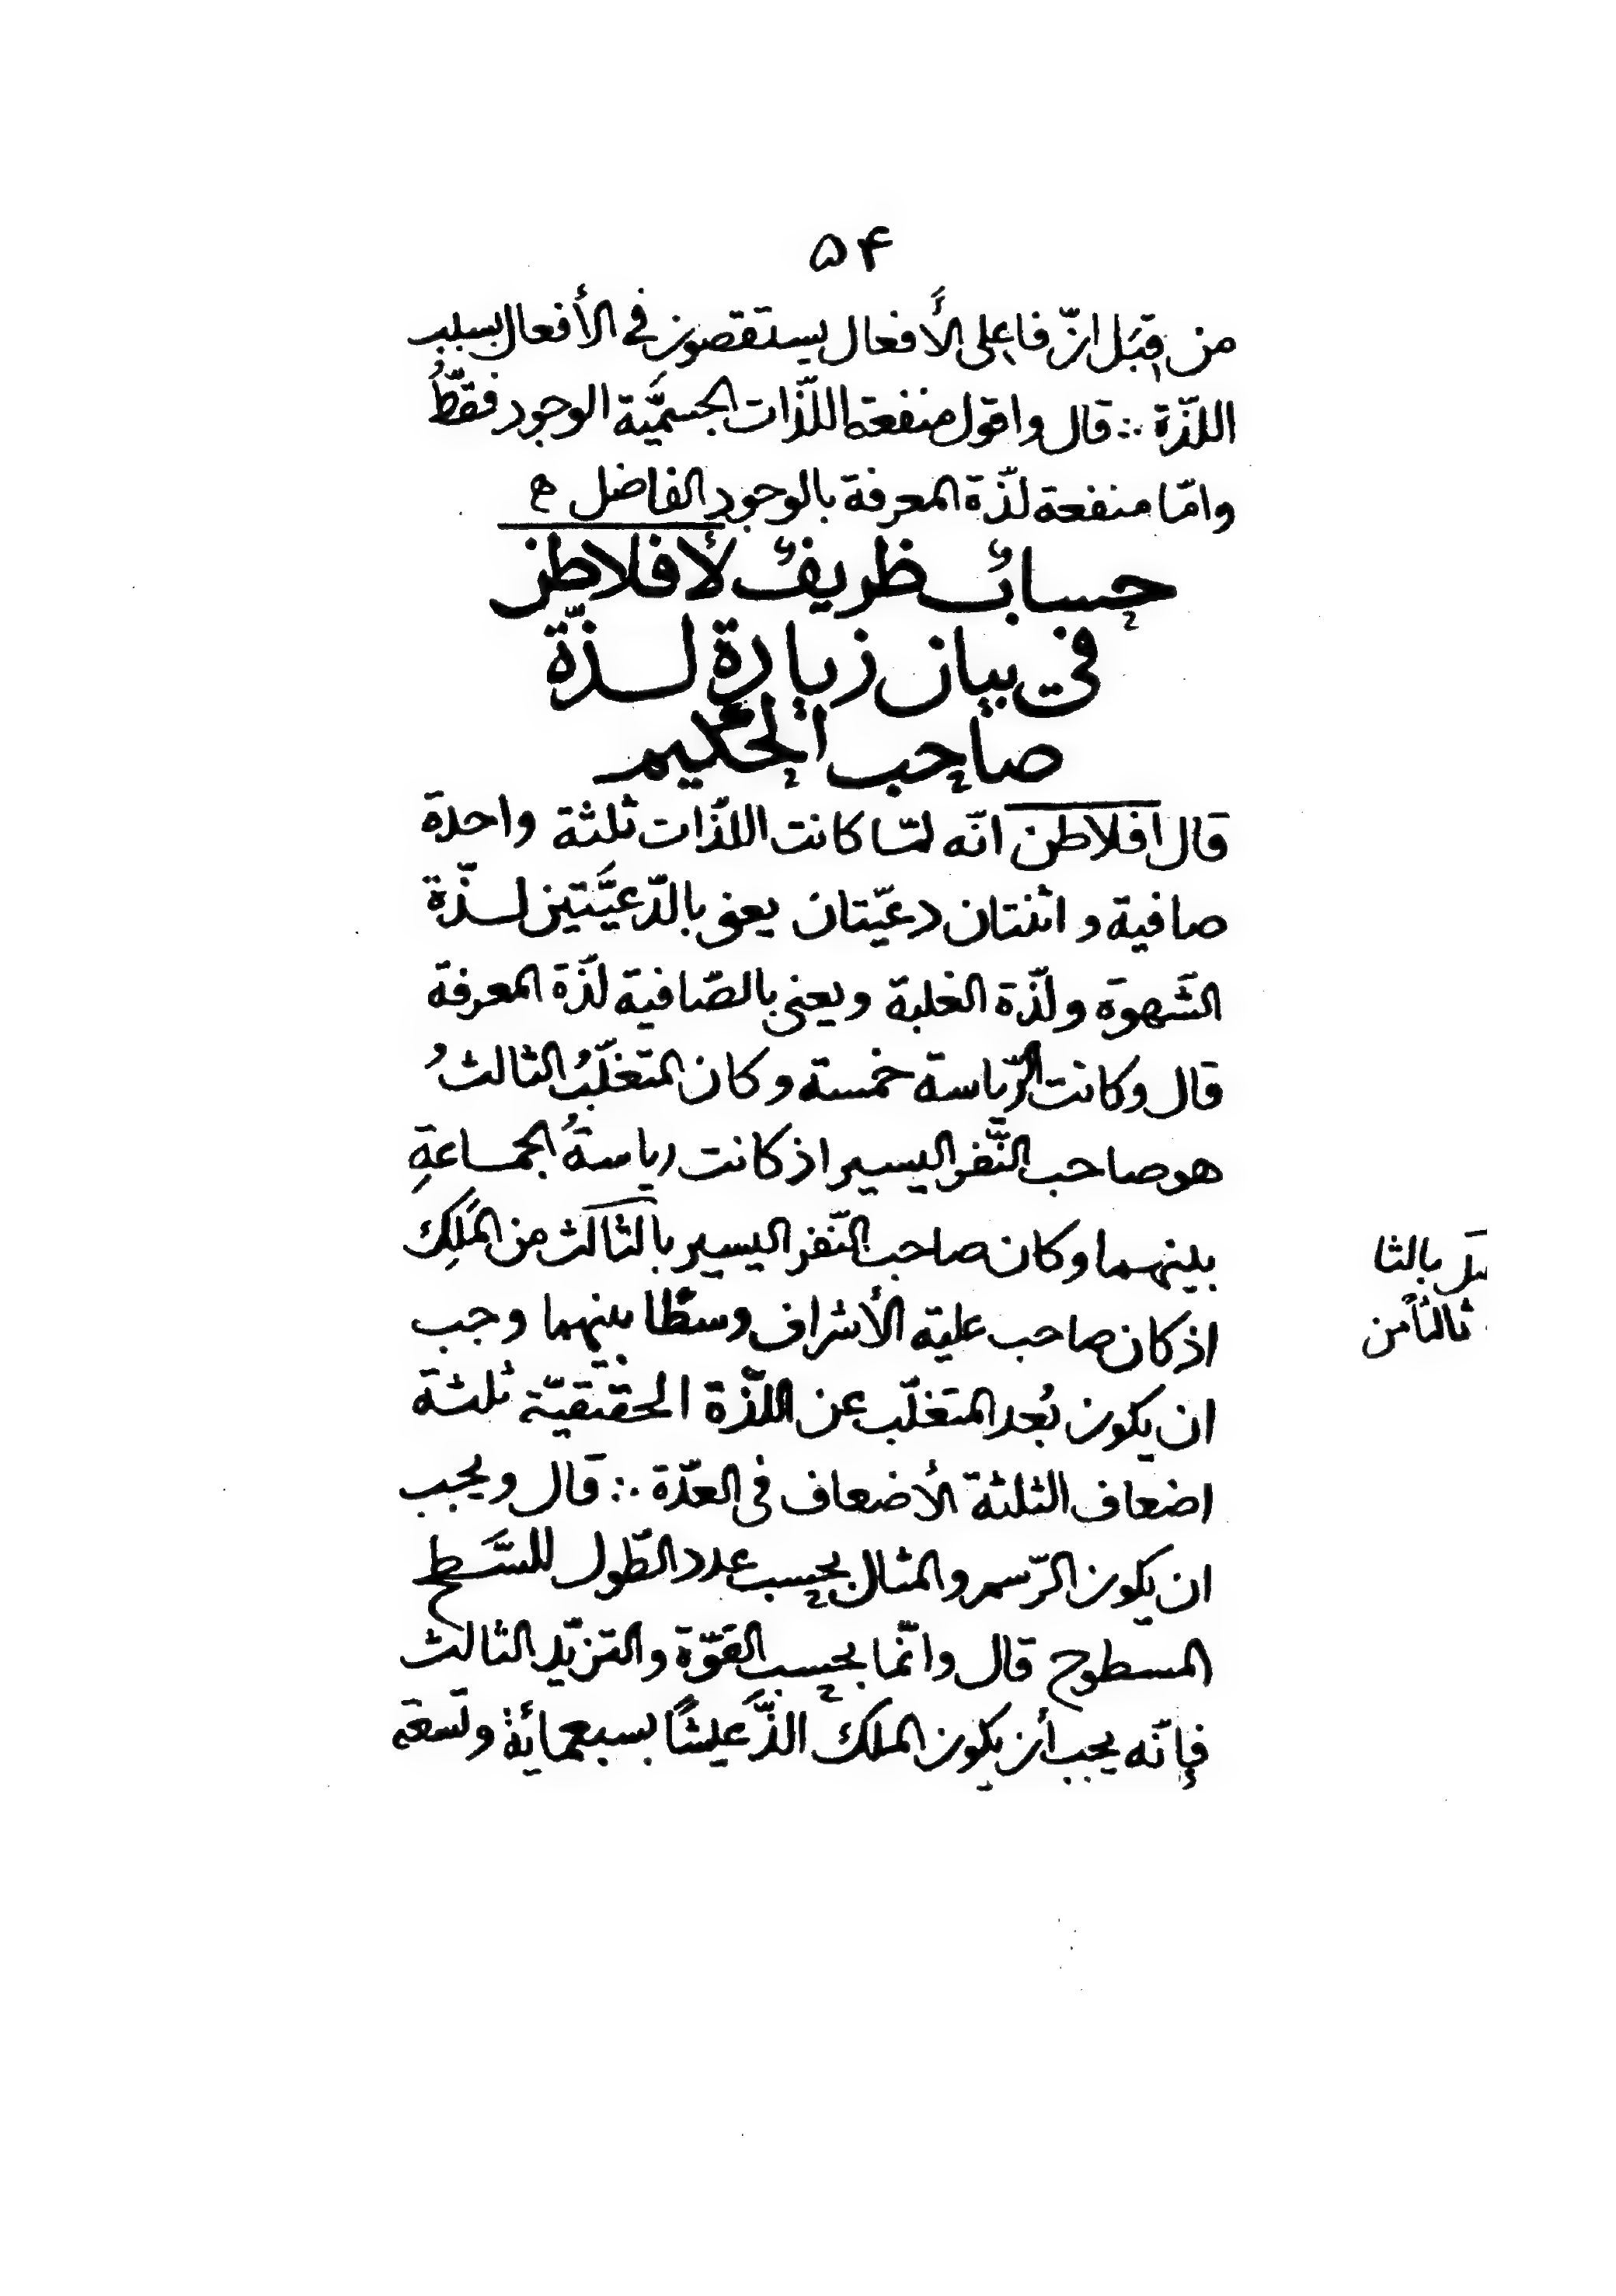 ۵۴
من قِبَل انّ فاعلى الأفعال يستقصون فى الأفعال بسبب
اللذّة ∴ قال واقول منفعة اللذّات الجسميَّة الوجود فقطُ
وامّا منفعة لذّة المعرفة بالوجود الفاضل ه
حساب ظريف لأفلاطن
فى بيان زيادة لذّة
صاحب الحكيم
قال افلاطن انّه لمّا كانت اللذّات ثلثة واحدة
صافية و اثنتان دعيّتان يعنى بالدّعيَّتين لذّة
الشهوة ولذّة الغلبة ويعنى بالصّافية لذّة المعرفة
قال وكانت الرّياسة خمسة وكان المتغلّبُ الثالثُ
هو صاحب النَّفر اليسير اذ كانت رياسةُ الجماعةِ
بينهما وكان صاحب النّفر اليسير بالثالث من المَلِك
اذ كان صاحب علية الأشراف وسطًا بينهما وجب
ان يكون بُعد المتغلّب عن اللذّة الحقيقيّة ثلثة
اضعاف الثلثة الأضعاف فى العدّة ∴ قال ويجب
ان يكون الرّسم والمثال بحسب عدد الطّول للسَّطح
المسطوح قال وانّما بحسب القوّة والتزيّد الثالث
فإنّه يجب أن يكون الملك الذّ عيشًا بسبعمائة وتسعة
بالثا
ثالثاً من